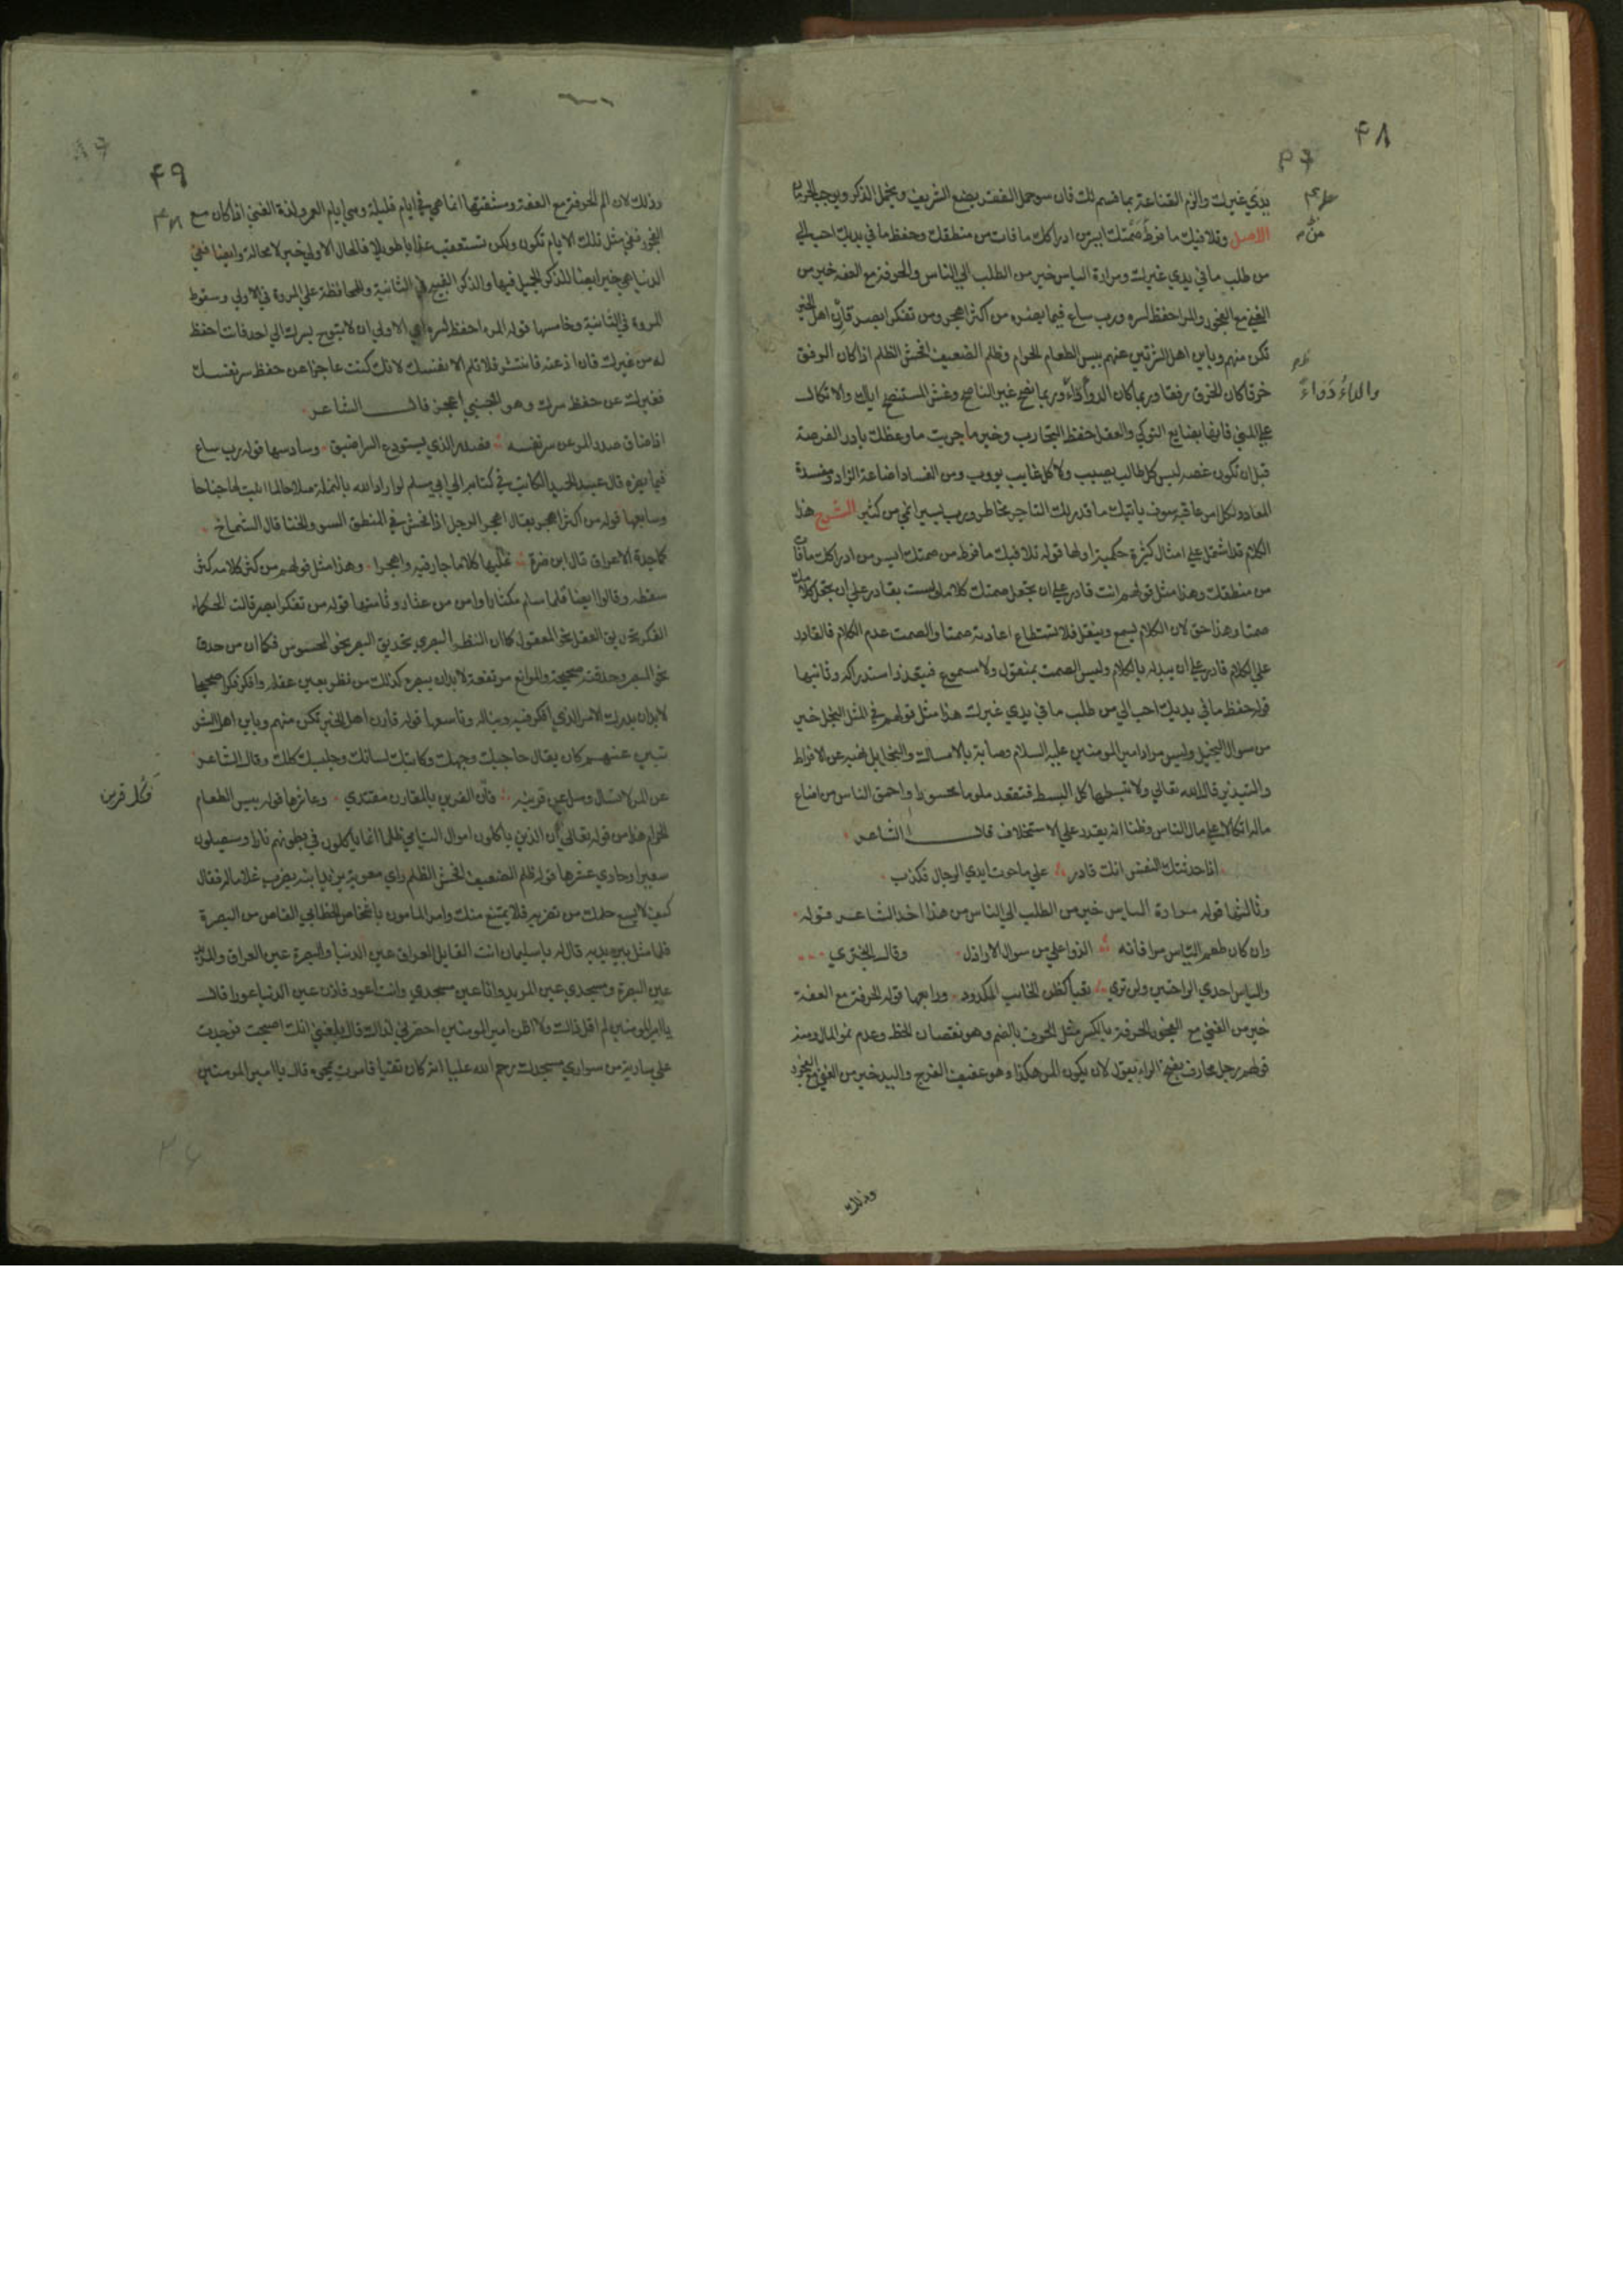 ٤٨
يدي غيرك والزم القناعة بما قسم لك فان سوحمل الفقر يضع الشريف ويخمل الذكر ويوجب الحرمان
الاصل وتلافيك ما فرط من صمتك ايسر من ادراكك ما فات من منطقك وحفظ ما في يديك احب الي
من طلب ما في يدي غيرك ومرارة الياس خير من الطلب الي الناس والحرفة مع العفة خير من
الغني مع الفجور والمرء احفظ لسره ورب ساع فيما يضره من اكثر اهجر ومن تفكر ابصر قارن اهل الخير
تكن منهم وباين اهل الشر تبن عنهم بيس الطعام الحرام وظلم الضعيف افحش الظلم اذا كان الرفق
خرقا كان الخرق رفقا وربما كان الدواء داء وربما نصح غير الناصح وغش المستنصح اياك والاتكال
والداء دواء
علي المني فانها بضايع النوكي والعقل حفظ التجارب وخير ما جربت ما وعظك بادر الفرصة
قبل ان تكون غصه ليس كل طالب يصيب ولا كل غايب يووب ومن الفساد اضاعة الزاد ومفسدة
المعاد ولكل امر عاقبه سوف ياتيك ما قدر لك التاجر مخاطر ورب يسير انمي من كثير الشرح هذا
الكلام قد اشتمل علي امثال كثيرة حكمية اولها قوله تلافيك ما فرط من صمتك ايسر من ادراكك ما فات
من منطقك وهذا مثل قولهم انت قادر علي ان تجعل صمتك كلاما ولست بقادر علي ان تجعل كلامك
صمتا وهذا حق لان الكلام يسمع وينقل فلا تستطاع اعادته صمتا والصمت عدم الكلام فالقادر
علي الكلام قادر علي ان يبدله بالكلام وليس الصمت بمنقول ولا مسموع فيتعذر استدراكه وثانيها
قوله حفظ ما في يديك احب الي من طلب ما في يدي غيرك هذا مثل قولهم في المثل البخل خير
من سوال البخيل وليس مراد امير المومنين عليه السلام وصايته بالامساك والبخل بل نهيه عن الافراط
والتبذير قال الله تعالي ولا تبسطها كل البسط فتقعد ملوما محسورا واحمق الناس من اضاع
ماله اتكالا علي مال الناس وظنا انه يقدر علي الاستخلاف قال الشاعر
اذا حدثتك النفس انك قادر علي ما حوت ايدي الرجال فكذب
وثالثها قوله مرارة الياس خير من الطلب الي الناس من هذا اخذ الشاعر قوله
وان كان طعم الياس مرا فانه الذ واحلي من سوال الاراذل وقال البحتري
والياس احدي الراحتين ولن تري تعبا كظن الخايب المكدود ورابعها قوله الحرفة مع العفة
خير من الغني مع الفجور الحرفة بالكسر مثل الحرف بالضم وهو نقصان الحظ وعدم نمو المال ومنه
قولهم رجل محارف بفتح الراء يقول لان يكون المرء هكذا وهو عفيف الفرج واليد خير من الغني مع الفجور
وذلك
٤٩
وذلك لان الم الحرفة مع العفة ومشقتها انما هي في ايام قليلة وهي ايام العمر ولذة الغني اذا كان مع
الفجور ففي مثل تلك الايام تكون ولكن تستعقب عذابا طويلا فالحال الاولي خير لا محالة وايضا ففي
الدنيا هي خير ايضا للذكر الجميل فيها والذكر القبيح في الثانية وللمحافظة علي المروة في الاولي وسقوط
المروة في الثانية وخامسها قوله المرء احفظ لسره اي الاولي ان لا تبوح بسرك الي احد فانت احفظ
له من غيرك فان اذعته فانتشر فلا تلم الا نفسك لانك كنت عاجزا عن حفظ سر نفسك
فغيرك عن حفظ سرك وهو اجنبي اعجز قال الشاعر
اذا ضاق صدر المرء عن سر نفسه فصدر الذي يستودع السر اضيق وسادسها قوله رب ساع
فيما يضره قال عبد الحميد الكاتب في كتابه الي ابي مسلم لو اراد الله بالنملة صلاحا لما انبت لها جناحا
وسابعها قوله من اكثر اهجر يقال اهجر الرجل اذا افحش في المنطق السوء والخنا قال الشماخ
كماجدة الاعراق قال ابن ضرة عليها كلاما جار فيه واهجرا وهذا مثل قولهم من كثر كلامه كثر
سقطه وقالوا ايضا قلما سلم مكثار او امن من عثار وثامنها قوله من تفكر ابصر قالت الحكماء
الفكر تحديق العقل نحو المعقول كما ان النظر البصري تحديق البصر نحو المحسوس فكما ان من حدق
نحو البصر وحدقته صحيحة والموانع مرتفعة لا بد ان يبصره كذلك من نظر بعين عقله وافكر فكرا صحيحا
لا بد ان يدرك الامر الذي افكر فيه ويناله وتاسعها قوله قارن اهل الخير تكن منهم وباين اهل الشر
تبن عنهم كان يقال حاجبك وجهك وكاتبك لسانك وجليسك كلك وقال الشاعر
عن المرء لا تسال وسل عن قرينه فان القرين بالمقارن مقتدي وعاشرها قوله بيس الطعام
فكل قرين
الحرام هذا من قوله تعالي ان الذين ياكلون اموال اليتامي ظلما انما ياكلون في بطونهم نارا وسيصلون
سعيرا وحادي عشرها قوله ظلم الضعيف افحش الظلم راي معوية بن ابيه يضرب غلاما له فقال
كيف لا يسع حلمك من تضربه فلا يمتنع منك وامر المامون باشخاص الخطابي القاص من البصرة
فلما مثل بين يديه قال له يا سليمان انت القايل العراق عين الدنيا والبصرة عين العراق والمربد
عين البصرة ومسجدي عين المربد وانا عين مسجدي وانت اعور فاذن عين الدنيا عورا قال
يا امير المومنين لم اقل ذلك ولا اظن امير المومنين احضرني لذلك قال بلغني انك اصبحت فوجدت
علي سارية من سواري مسجدك رحم الله عليا انه كان تقيا فامرت بمحوه قال يا امير المومنين